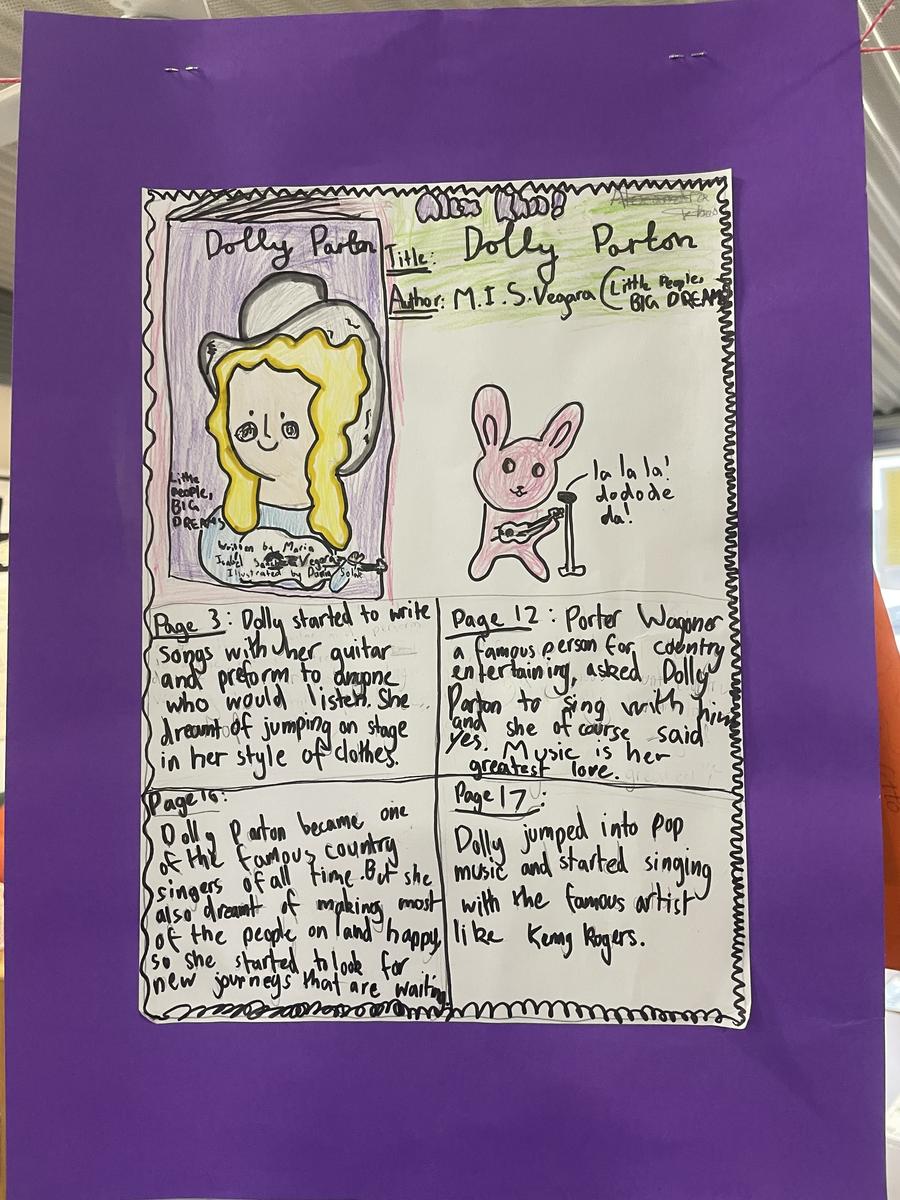 Alex Khoo!
Dolly Parton
Little
People,
BIG
DREAMS
Written by Maria
Isabel Vegara
Illustrated by Daria Solak
Title: Dolly Parton
Author: M.I.S.Vegara (Little People,
BIG DREAMS
la la la!
do do de
da!
Page 3: Dolly started to write
songs with her guitar
and preform to anyone
who would listen. She
dreamt of jumping on stage
in her style of clothes.
Page 12: Porter Wagoner
a famous person for country
entertaining, asked Dolly
Parton to sing with him
and she of course said
yes. Music is her
greatest love.
Page 16:
Dolly Parton became one
of the famous country
singers of all time. But she
also dreamt of making most
of the people on land happy,
so she started to look for
new journeys that are waiting.
Page 17:
Dolly jumped into pop
music and started singing
with the famous artist
like Kenny Rogers.